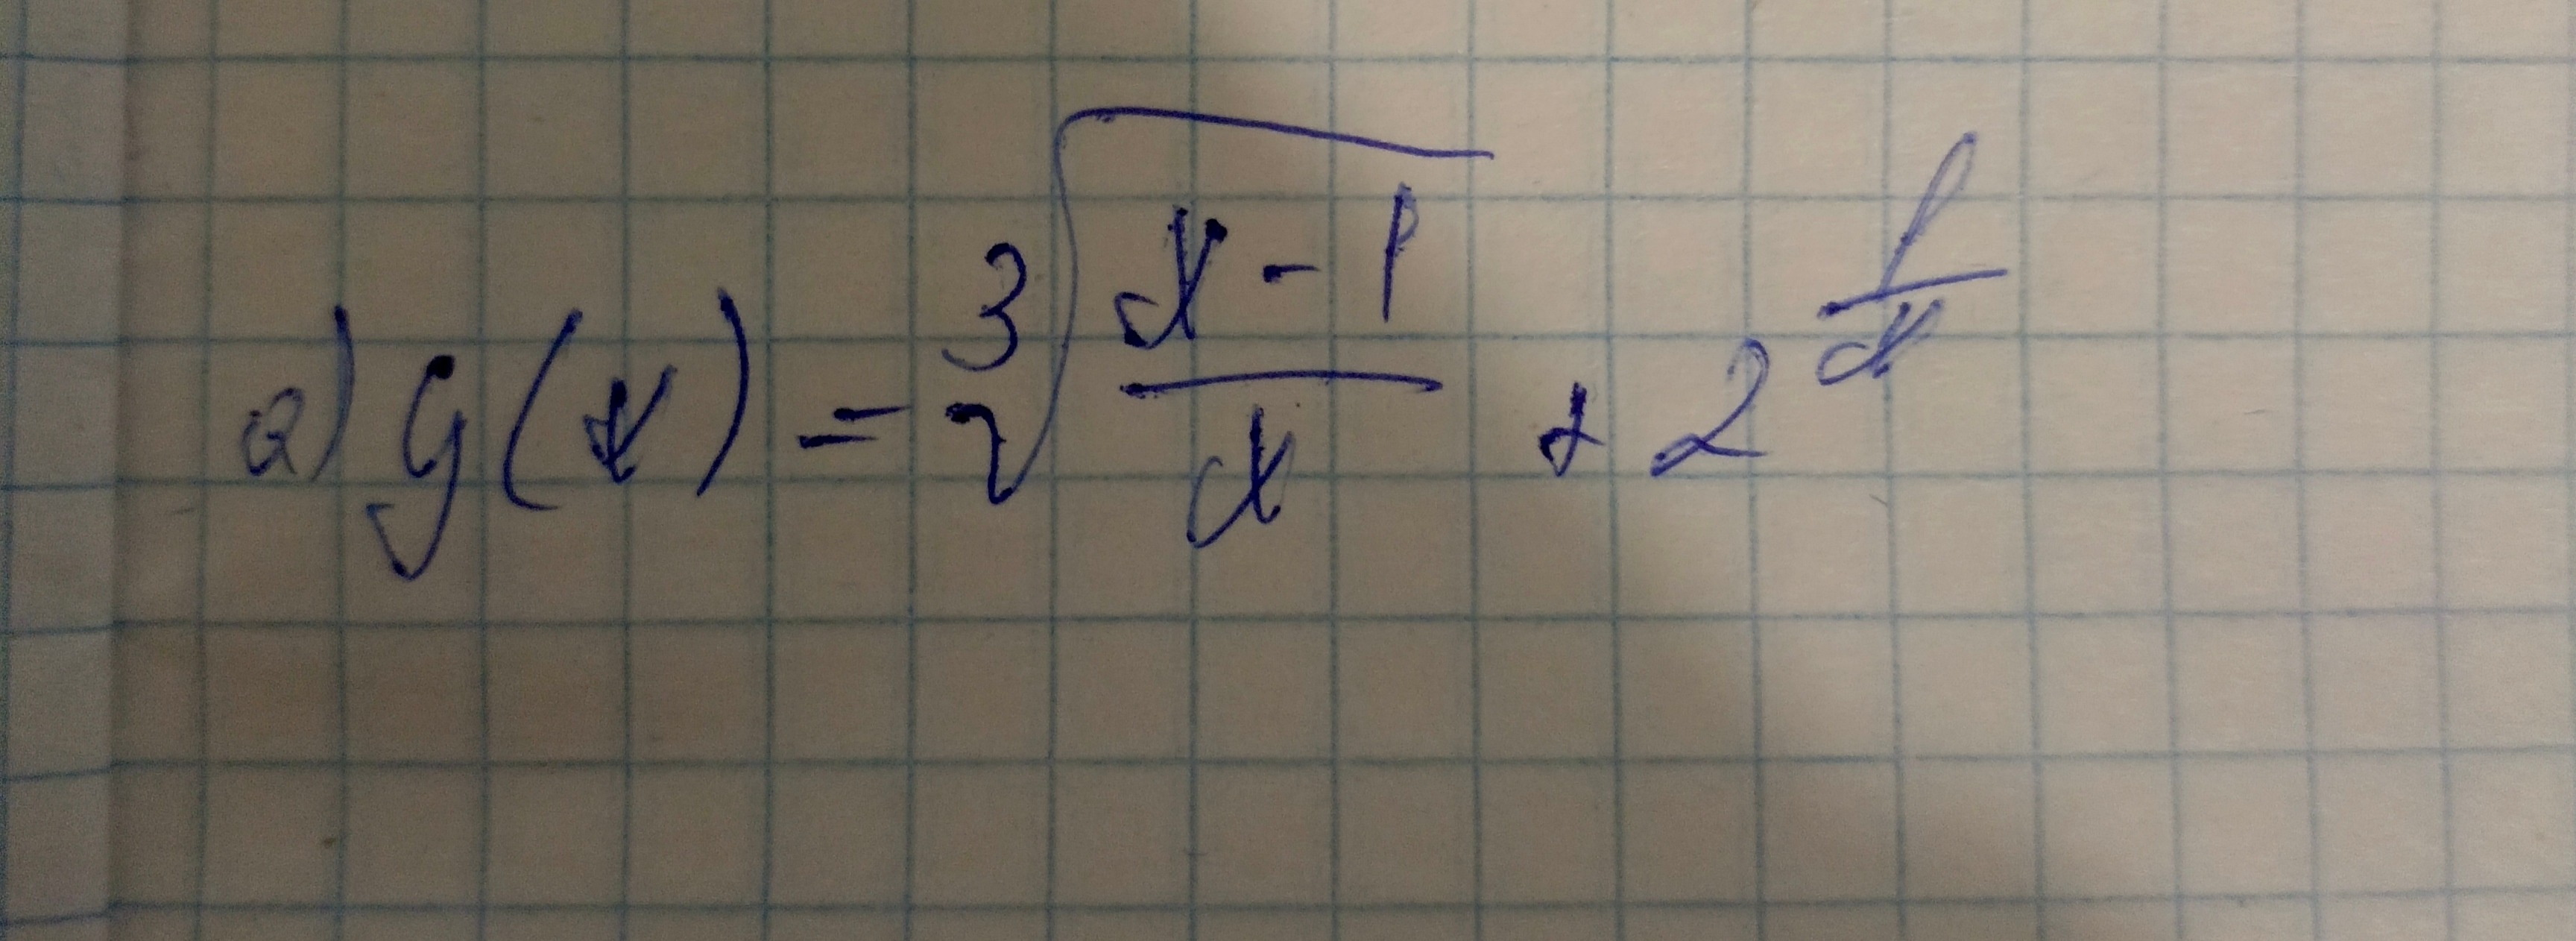 a) y(x) = ∛((x-1)/x) + 2^(1/x)